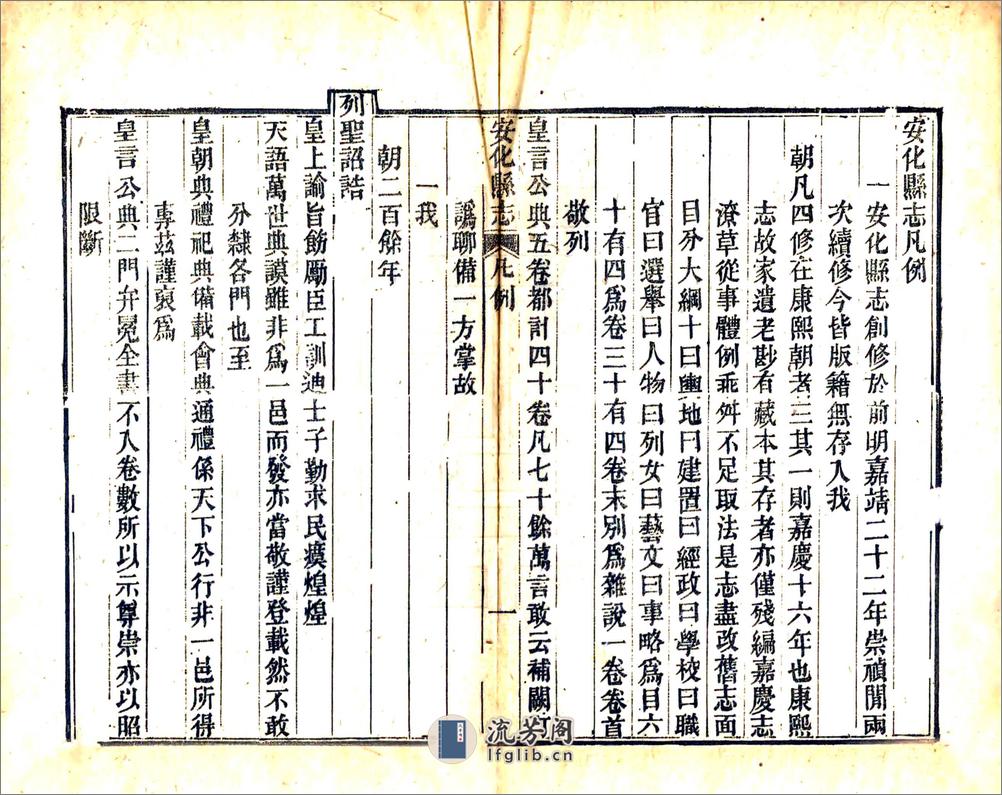 安化縣志凡例
一安化縣志創修於前明嘉靖二十二年崇禎間兩
次續修今皆版籍無存入我
朝凡四修在康熙朝者三其一則嘉慶十六年也康熙
志故家遺老尟有藏本其存者亦僅殘編嘉慶志
潦草從事體例乖舛不足取法是志盡改舊志面
目分大綱十曰輿地曰建置曰經政曰學校曰職
官曰選舉曰人物曰列女曰藝文曰事略為目六
十有四為卷三十有四卷末別為雜說一卷卷首
敬列
皇言公典五卷都計四十卷凡七十餘萬言敢云補闕訂
安化縣志 凡例 一
譌聊備一方掌故
一我
朝二百餘年
列聖詔誥
皇上諭旨飭勵臣工訓迪士子勤求民瘼煌煌
天語萬世典謨雖非為一邑而發亦當敬謹登載然不敢
分隸各門也至
皇朝典禮祀典備載會典通禮係天下公行非一邑所得
專茲謹裒為
皇言公典二門弁冕全書不入卷數所以示尊崇亦以昭
限斷
流芳閣
lfglib.cn